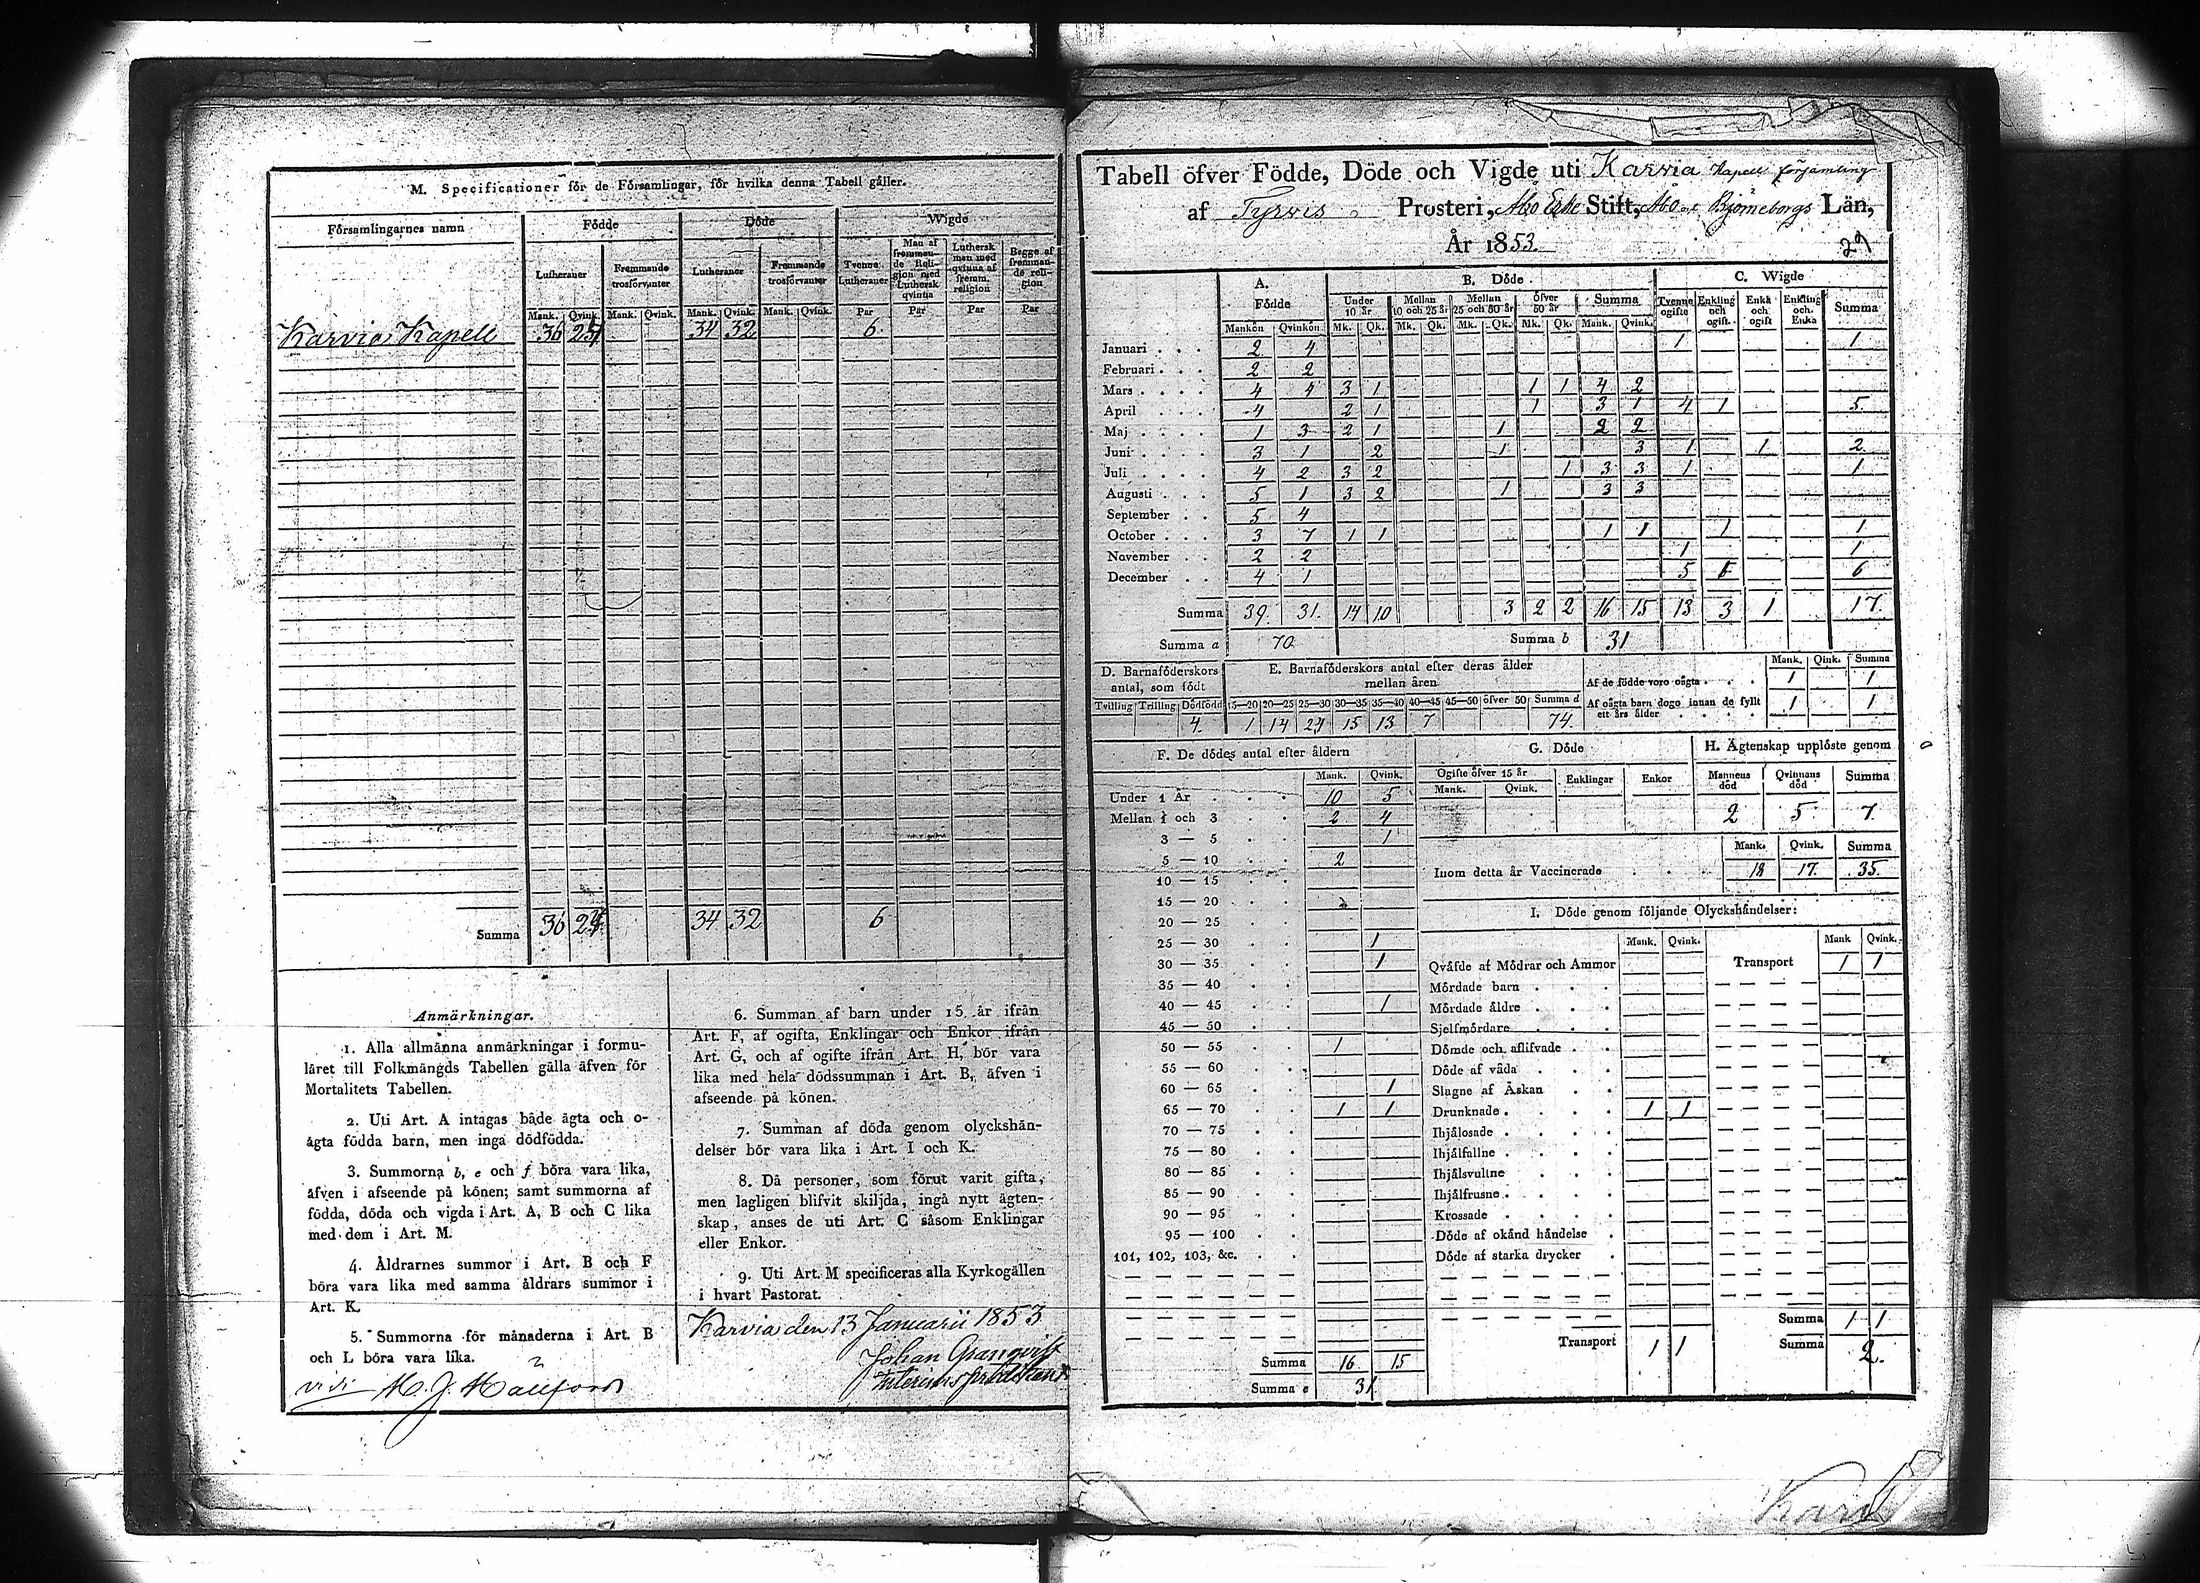 M. Specificationer för de Församlingar, för hvilka denna Tabell gäller.
Församlingarnes namn | Födde | Döde | Wigde
Lutheraner | Främmande trosförvanter | Lutheraner | Främmande trosförvanter | Tvenne Lutheraner | Man af främmande Religion med Luthersk qvinna | Luthersk man med qvinna af främm. religion | Begge af främmande religion
Mank. | Qvink. | Mank. | Qvink. | Mank. | Qvink. | Mank. | Qvink. | Par | Par | Par | Par
Karvia Kapell 36 34 32 6
Summa 36 34 32 6
Anmärkningar.
1. Alla allmänna anmärkningar i formu-
läret till Folkmängds Tabellen gälla äfven för
Mortalitets Tabellen.
2. Uti Art. A intagas både ägta och o-
ägta födda barn, men inga dödfödda.
3. Summorna b, e och f böra vara lika,
äfven i afseende på könen; samt summorna af
födda, döda och vigda i Art. A, B och C lika
med dem i Art. M.
4. Åldrarnes summor i Art. B och F
böra vara lika med samma åldrars summor i
Art. K.
5. Summorna för månaderna i Art. B
och L böra vara lika.
6. Summan af barn under 15 år ifrån
Art. F, af ogifta, Enklingar och Enkor ifrån
Art. G, och af ogifte ifrån Art. H, bör vara
lika med hela dödssumman i Art. B, äfven i
afseende på könen.
7. Summan af döda genom olyckshän-
delser bör vara lika i Art. I och K.
8. Då personer, som förut varit gifta,
men lagligen blifvit skiljda, ingå nytt ägten-
skap, anses de uti Art. C såsom Enklingar
eller Enkor.
9. Uti Art. M specificeras alla Kyrkogällen
i hvart Pastorat.
Karvia den 13 Januarii 1853
Johan Granqvist
vidi
Tabell öfver Födde, Döde och Vigde uti Karvia Kapell församling
af Tyrvis Prosteri, Åbo Erke Stift, Åbo och Björneborgs Län,
År 1853.
29
A. Födde | B. Döde | C. Wigde
Under 10 år | Mellan 10 och 25 år | Mellan 25 och 50 år | Öfver 50 år | Summa | Tvenne ogifte | Enkling och ogift | Enka och ogift | Enkling och Enka | Summa
Mankön | Qvinkön | Mk. | Qk. | Mk. | Qk. | Mk. | Qk. | Mk. | Qk. | Mank. | Qvink.
Januari 2 4 1 1
Februari 2 2
Mars 4 4 3 1 1 1 4 2
April 4 2 1 1 3 1 4 1 5
Maj 1 3 2 1 1 2 2
Juni 3 1 2 1 3 1 1 2
Juli 4 2 3 2 1 3 3 1 1
Augusti 5 1 3 2 1 3 3
September 5 4
October 3 7 1 1 1 1 1 1
November 2 2 1 1
December 4 1 5 6
Summa 39 31 14 10 3 2 2 16 15 13 3 1 17
Summa a 70 Summa b 31
D. Barnaföderskors antal, som födt
Tvilling | Trilling | Dödfödd
4
E. Barnaföderskors antal efter deras ålder mellan åren
15—20 | 20—25 | 25—30 | 30—35 | 35—40 | 40—45 | 45—50 | öfver 50 | Summa d
1 14 24 15 13 7 74
Mank. | Qink. | Summa
Af de födde voro oägta 1 1
Af oägta barn dogo innan de fyllt ett års ålder 1 1
F. De dödes antal efter åldern
Mank. | Qvink.
Under 1 År 10 5
Mellan 1 och 3 2 4
3 — 5 1
5 — 10 2
10 — 15
15 — 20
20 — 25
25 — 30 1
30 — 35 1
35 — 40
40 — 45 1
45 — 50
50 — 55 1
55 — 60
60 — 65 1
65 — 70 1 1
70 — 75
75 — 80
80 — 85
85 — 90
90 — 95
95 — 100
101, 102, 103, &c.
Summa 16 15
Summa e 31
G. Döde
Ogifte öfver 15 år | Enklingar | Enkor
Mank. | Qvink.
H. Ägtenskap upplöste genom
Mannens död | Qvinnans död | Summa
2 5 7
Mank. | Qvink. | Summa
Inom detta år Vaccinerade 18 17 35
I. Döde genom följande Olyckshändelser:
Mank. | Qvink. | Mank | Qvink.
Qväfde af Mödrar och Ammor Transport 1 1
Mördade barn
Mördade äldre
Sjelfmördare
Dömde och aflifvade
Döde af våda
Slagne af Åskan
Drunknade 1 1
Ihjälosade
Ihjälfallne
Ihjälsvultne
Ihjälfrusne
Krossade
Döde af okänd händelse
Döde af starka drycker
Summa 1 1
Transport 1 1 Summa 2